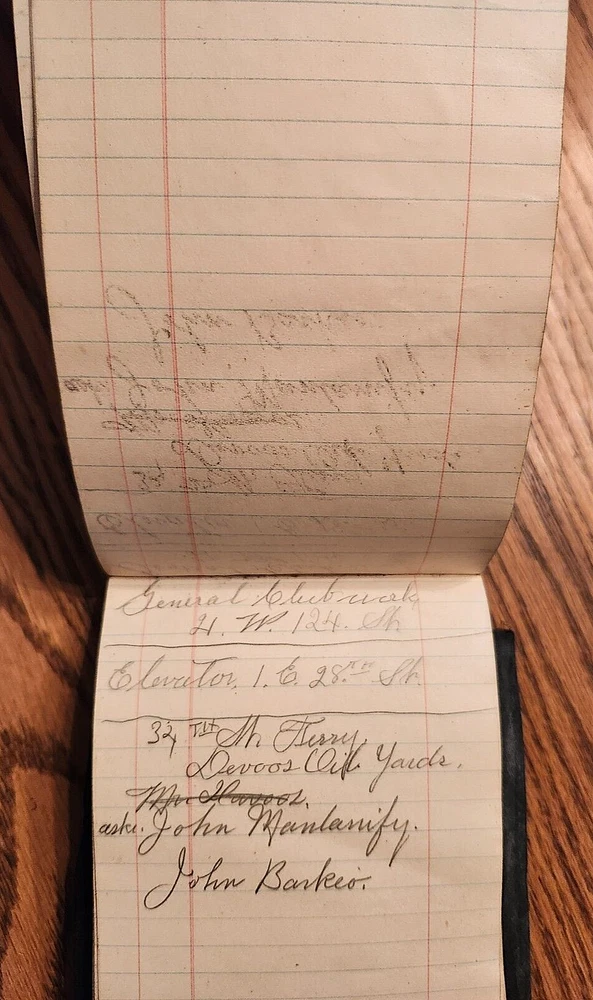 General Club work
21. W. 124. St.
Elevator. 1. E. 28.th St.
34 TH St. Ferry.
Devoos Oil Yards.
Mr.
ask. John Manlanify.
John Barkeo.